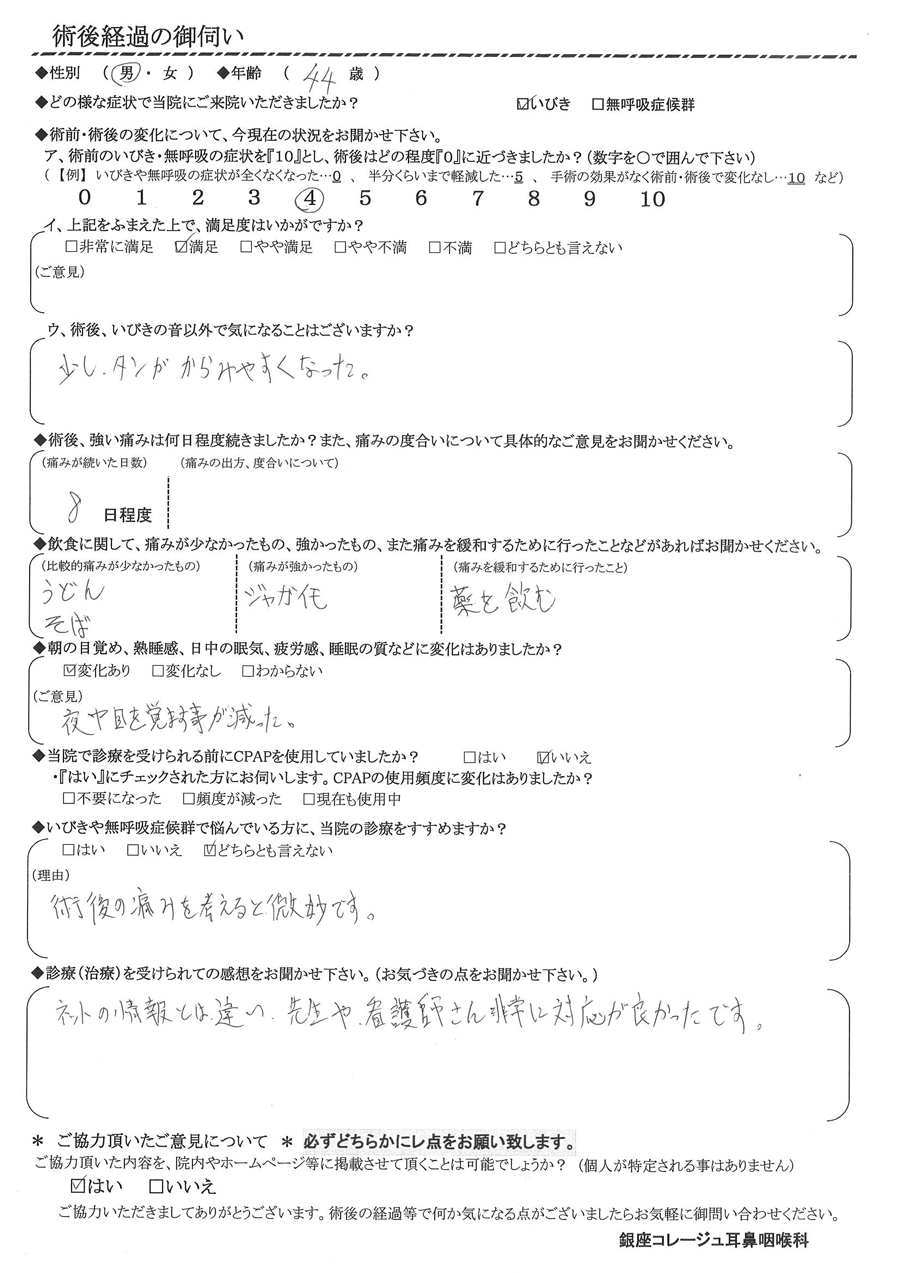 術後経過の御伺い
◆性別 (男・女) ◆年齢 (44歳)
◆どの様な症状で当院にご来院いただきましたか? ☑いびき □無呼吸症候群
◆術前・術後の変化について、今現在の状況をお聞かせ下さい。
ア、術前のいびき・無呼吸の症状を『10』とし、術後はどの程度『0』に近づきましたか?(数字を○で囲んで下さい)
(【例】いびきや無呼吸の症状が全くなくなった…0 、 半分くらいまで軽減した…5 、 手術の効果がなく術前・術後で変化なし…10 など)
0 1 2 3 4 5 6 7 8 9 10
イ、上記をふまえた上で、満足度はいかがですか?
□非常に満足 ☑満足 □やや満足 □やや不満 □不満 □どちらとも言えない
(ご意見)
ウ、術後、いびきの音以外で気になることはございますか?
少し、タンがからみやすくなった。
◆術後、強い痛みは何日程度続きましたか?また、痛みの度合いについて具体的なご意見をお聞かせください。
(痛みが続いた日数) (痛みの出方、度合いについて)
8 日程度
◆飲食に関して、痛みが少なかったもの、強かったもの、また痛みを緩和するために行ったことなどがあればお聞かせください。
(比較的痛みが少なかったもの) (痛みが強かったもの) (痛みを緩和するために行ったこと)
うどん ジャガイモ 薬を飲む
そば
◆朝の目覚め、熟睡感、日中の眠気、疲労感、睡眠の質などに変化はありましたか?
☑変化あり □変化なし □わからない
(ご意見)
夜中目を覚ます事が減った。
◆当院で診療を受けられる前にCPAPを使用していましたか? □はい ☑いいえ
・『はい』にチェックされた方にお伺いします。CPAPの使用頻度に変化はありましたか?
□不要になった □頻度が減った □現在も使用中
◆いびきや無呼吸症候群で悩んでいる方に、当院の診療をすすめますか?
□はい □いいえ ☑どちらとも言えない
(理由)
術後の痛みを考えると微妙です。
◆診療(治療)を受けられての感想をお聞かせ下さい。(お気づきの点をお聞かせ下さい。)
ネットの情報とは違い、先生や、看護師さん非常に対応が良かったです。
＊ ご協力頂いたご意見について ＊ 必ずどちらかにレ点をお願い致します。
ご協力頂いた内容を、院内やホームページ等に掲載させて頂くことは可能でしょうか? (個人が特定される事はありません)
☑はい □いいえ
ご協力いただきましてありがとうございます。術後の経過等で何か気になる点がございましたらお気軽に御問い合わせください。
銀座コレージュ耳鼻咽喉科